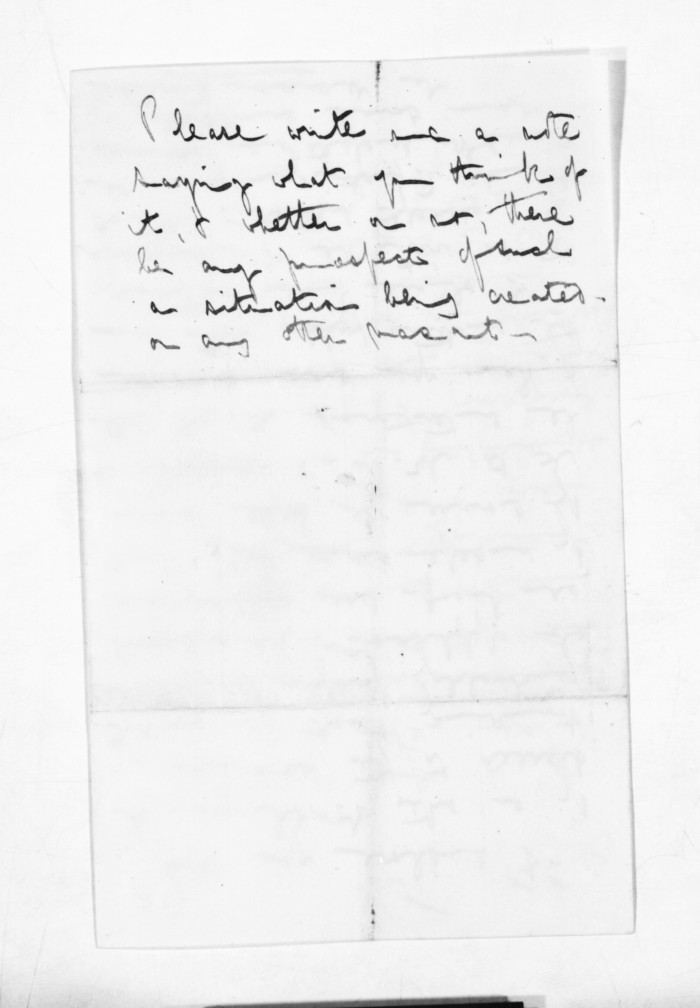 Please write me a note
saying what you think of
it, & whether or not, there
be any prospect of such
a situation being created -
or any other